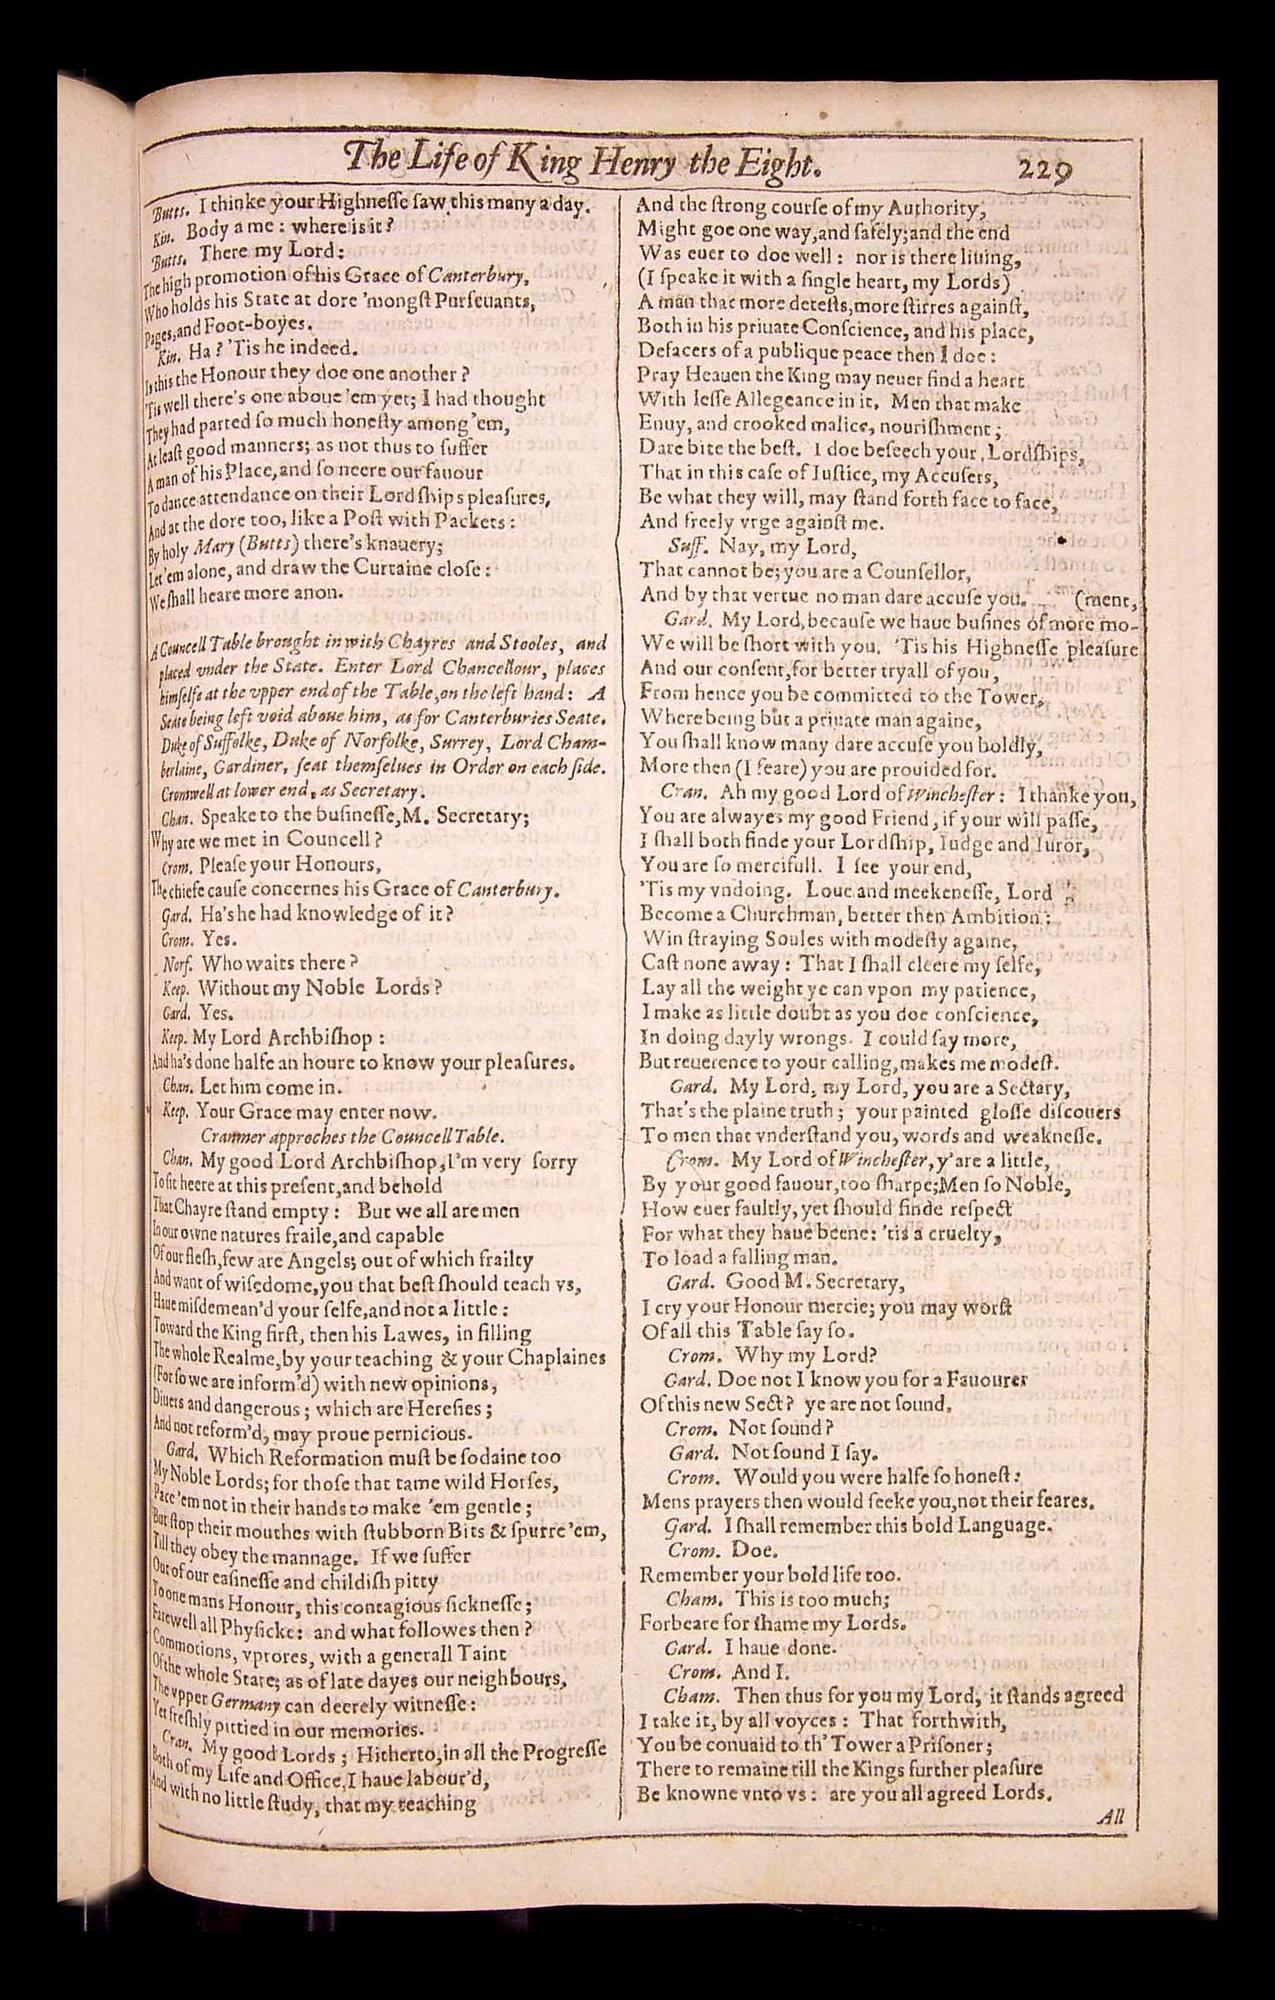 The Life of King Henry the Eight. 229
Butts. I thinke your Highnesse saw this many a day.
Kin. Body a me: where is it?
Butts. There my Lord:
The high promotion of his Grace of Canterbury,
Who holds his State at dore 'mongst Purseuants,
Pages, and Foot-boyes.
Kin. Ha? 'Tis he indeed.
Is this the Honour they doe one another?
'Tis well there's one aboue 'em yet; I had thought
They had parted so much honesty among 'em,
At least good manners; as not thus to suffer
A man of his Place, and so neere our fauour
To dance attendance on their Lordships pleasures,
And at the dore too, like a Post with Packets:
By holy Mary (Butts) there's knauery;
Let 'em alone, and draw the Curtaine close:
We shall heare more anon.
A Councell Table brought in with Chayres and Stooles, and
placed vnder the State. Enter Lord Chancellour, places
himselfe at the vpper end of the Table, on the left hand: A
Seate being left void aboue him, as for Canterburies Seate.
Duke of Suffolke, Duke of Norfolke, Surrey, Lord Cham-
berlaine, Gardiner, seat themselues in Order on each side.
Cromwell at lower end, as Secretary.
Chan. Speake to the businesse, M. Secretary;
Why are we met in Councell?
Crom. Please your Honours,
The chiefe cause concernes his Grace of Canterbury.
Gard. Ha's he had knowledge of it?
Crom. Yes.
Norf. Who waits there?
Keep. Without my Noble Lords?
Gard. Yes.
Keep. My Lord Archbishop:
And ha's done halfe an houre to know your pleasures.
Chan. Let him come in.
Keep. Your Grace may enter now.
Cranmer approches the Councell Table.
Chan. My good Lord Archbishop, I'm very sorry
To sit heere at this present, and behold
That Chayre stand empty: But we all are men
In our owne natures fraile, and capable
Of our flesh, few are Angels; out of which frailty
And want of wisedome, you that best should teach vs,
Haue misdemean'd your selfe, and not a little:
Toward the King first, then his Lawes, in filling
The whole Realme, by your teaching & your Chaplaines
(For so we are inform'd) with new opinions,
Diuers and dangerous; which are Heresies;
And not reform'd, may proue pernicious.
Gard. Which Reformation must be sodaine too
My Noble Lords; for those that tame wild Horses,
Pace 'em not in their hands to make 'em gentle;
But stop their mouthes with stubborn Bits & spurre 'em,
Till they obey the mannage. If we suffer
Out of our easinesse and childish pitty
To one mans Honour, this contagious sicknesse;
Farewell all Physicke: and what followes then?
Commotions, vprores, with a generall Taint
Of the whole State; as of late dayes our neighbours,
The vpper Germany can deerely witnesse:
Yet freshly pittied in our memories.
Cran. My good Lords; Hitherto, in all the Progresse
Both of my Life and Office, I haue labour'd,
And with no little study, that my teaching
And the strong course of my Authority,
Might goe one way, and safely; and the end
Was euer to doe well: nor is there liuing,
(I speake it with a single heart, my Lords)
A man that more detests, more stirres against,
Both in his priuate Conscience, and his place,
Defacers of a publique peace then I doe:
Pray Heauen the King may neuer find a heart
With lesse Allegeance in it. Men that make
Enuy, and crooked malice, nourishment;
Dare bite the best. I doe beseech your, Lordships,
That in this case of Iustice, my Accusers,
Be what they will, may stand forth face to face,
And freely vrge against me.
Suff. Nay, my Lord,
That cannot be; you are a Counsellor,
And by that vertue no man dare accuse you. (ment,
Gard. My Lord, because we haue busines of more mo-
We will be short with you. 'Tis his Highnesse pleasure
And our consent, for better tryall of you,
From hence you be committed to the Tower,
Where being but a priuate man againe,
You shall know many dare accuse you boldly,
More then (I feare) you are prouided for.
Cran. Ah my good Lord of Winchester: I thanke you,
You are alwayes my good Friend, if your will passe,
I shall both finde your Lordship, Iudge and Iuror,
You are so mercifull. I see your end,
'Tis my vndoing. Loue and meekenesse, Lord
Become a Churchman, better then Ambition:
Win straying Soules with modesty againe,
Cast none away: That I shall cleere my selfe,
Lay all the weight ye can vpon my patience,
I make as little doubt as you doe conscience,
In doing dayly wrongs. I could say more,
But reuerence to your calling, makes me modest.
Gard. My Lord, my Lord, you are a Sectary,
That's the plaine truth; your painted glosse discouers
To men that vnderstand you, words and weaknesse.
Crom. My Lord of Winchester, y'are a little,
By your good fauour, too sharpe; Men so Noble,
How euer faultly, yet should finde respect
For what they haue beene: 'tis a cruelty,
To load a falling man.
Gard. Good M. Secretary,
I cry your Honour mercie; you may worst
Of all this Table say so.
Crom. Why my Lord?
Gard. Doe not I know you for a Fauourer
Of this new Sect? ye are not sound.
Crom. Not sound?
Gard. Not sound I say.
Crom. Would you were halfe so honest:
Mens prayers then would seeke you, not their feares.
Gard. I shall remember this bold Language.
Crom. Doe.
Remember your bold life too.
Cham. This is too much;
Forbeare for shame my Lords.
Gard. I haue done.
Crom. And I.
Cham. Then thus for you my Lord, it stands agreed
I take it, by all voyces: That forthwith,
You be conuaid to th' Tower a Prisoner;
There to remaine till the Kings further pleasure
Be knowne vnto vs: are you all agreed Lords.
All